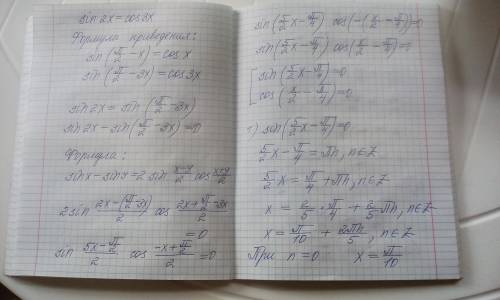 sin 2x = cos 3x
Формула приведения:
sin(π/2 - x) = cos x
sin(π/2 - 3x) = cos 3x
sin 2x = sin(π/2 - 3x)
sin 2x - sin(π/2 - 3x) = 0
Формула:
sin x - sin y = 2 sin (x-y)/2 cos (x+y)/2
2 sin (2x - (π/2 - 3x))/2 cos (2x + π/2 - 3x)/2 = 0
sin (5x - π/2)/2 cos (-x + π/2)/2 = 0
sin(5/2 x - π/4) cos(-(x/2 - π/4)) = 0
sin(5/2 x - π/4) cos(x/2 - π/4) = 0
[ sin(5/2 x - π/4) = 0
cos(x/2 - π/4) = 0
1) sin(5/2 x - π/4) = 0
5/2 x - π/4 = πn, n∈Z
5/2 x = π/4 + πn, n∈Z
x = 2/5 · π/4 + 2/5 πn, n∈Z
x = π/10 + 2πn/5, n∈Z
При n = 0 x = π/10